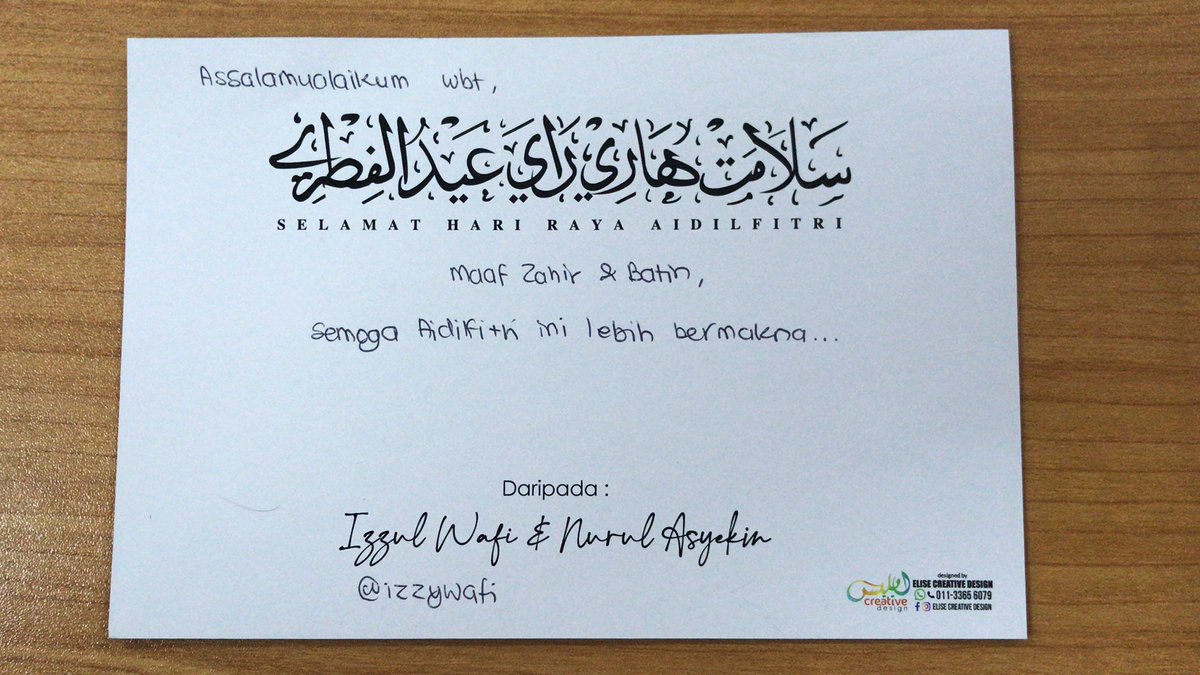 Assalamualaikum wbt,
سَلَامَتْ هَارِي رَاي عَيْدُالفِطْرِي
SELAMAT HARI RAYA AIDILFITRI
Maaf Zahir & Batin,
Semoga Aidilfitri ini lebih bermakna...
Daripada :
Izzul Wafi & Nurul Asyekin
@izzywafi
designed by
ELISE CREATIVE DESIGN
creative
design
011-3365 6079
ELISE CREATIVE DESIGN